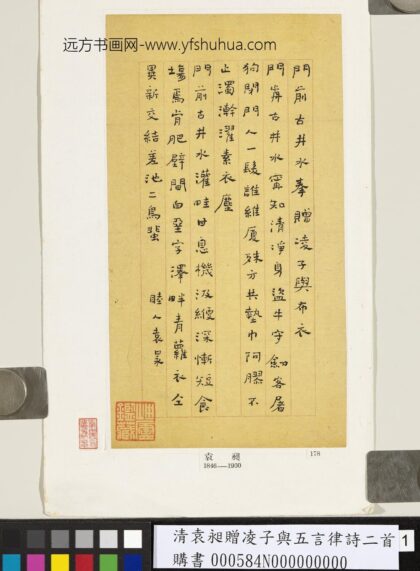 远方书画网-www.yfshuhua.com
門前古井水奉贈凌子與布衣
門前古井水甯知清淨身盜牛字劍客屠
狗閉門人一髮誰維廈殊方共墊巾阿膠不
止濁澣濯素衣塵
門前古井水灌畦甘息機汲綆深慚短食
場焉肯肥壁間白堊字澤畔青蘿衣仝
異新交結差池二鳥蜚
睦人袁昶
袁 昶
1846—1900
178
清袁昶贈凌子與五言律詩二首
1
購書 000584N000000000